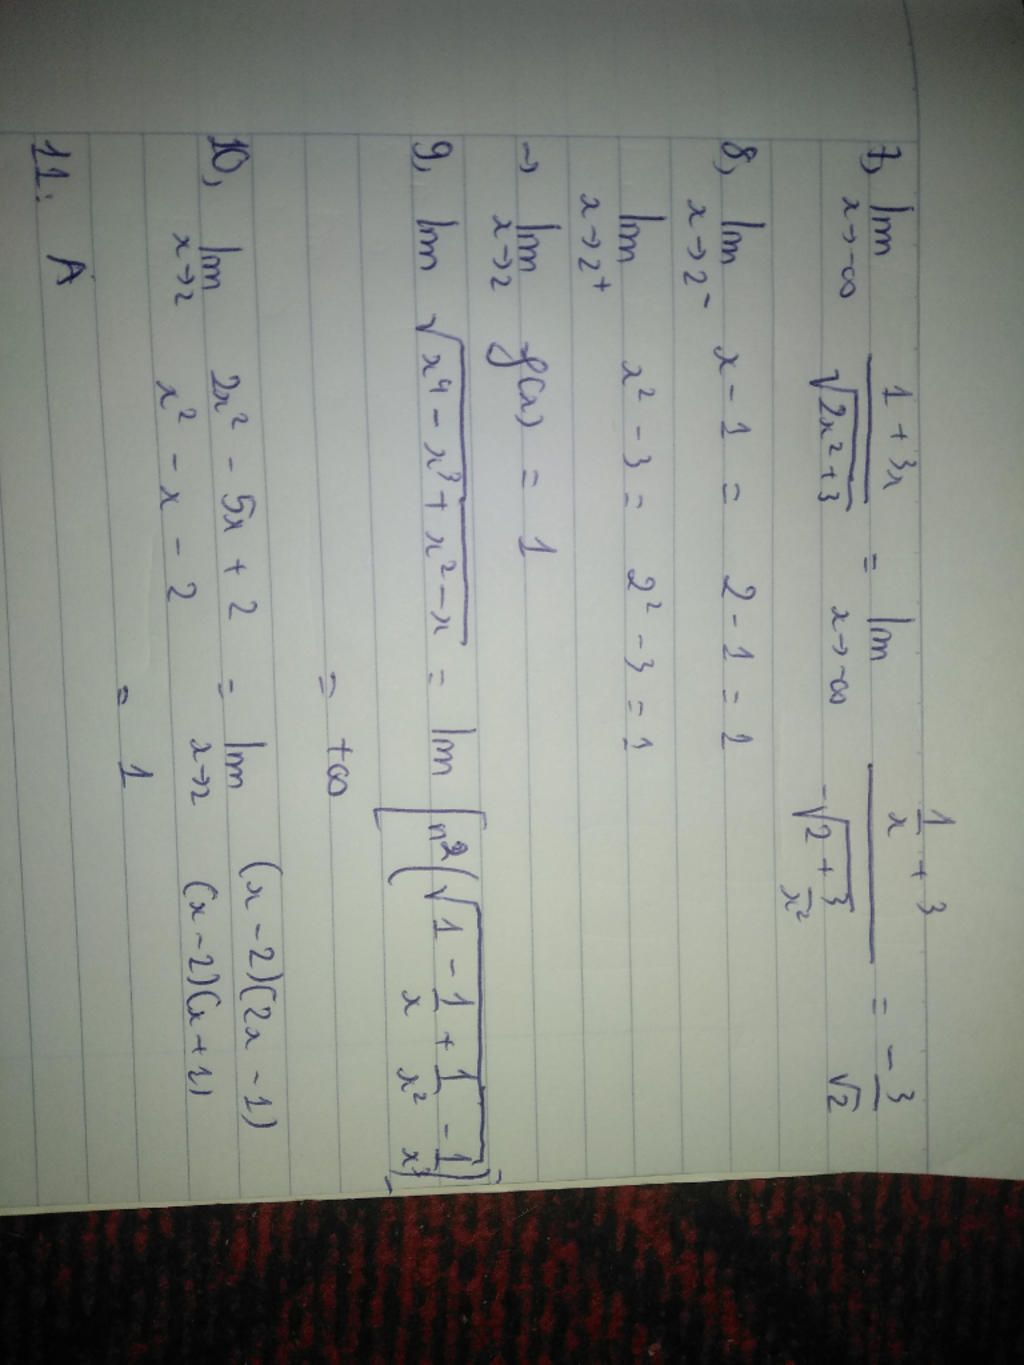 7, lim 1 + 3x / √2x² + 3 = lim 1/x + 3 / -√2 + 3/x² = - 3/√2
x → -∞ x → -∞
8, lim x - 1 = 2 - 1 = 1
x → 2⁻
lim x² - 3 = 2² - 3 = 1
x → 2⁺
→ lim f(x) = 1
x → 2
9, lim √x⁴ - x³ + x² - x = lim [n²(√1 - 1/x + 1/x² - 1/x³)]
= +∞
10, lim 2x² - 5x + 2 / x² - x - 2 = lim (x - 2)(2x - 1) / (x - 2)(x + 1)
x → 2 x → 2
= 1
11: A